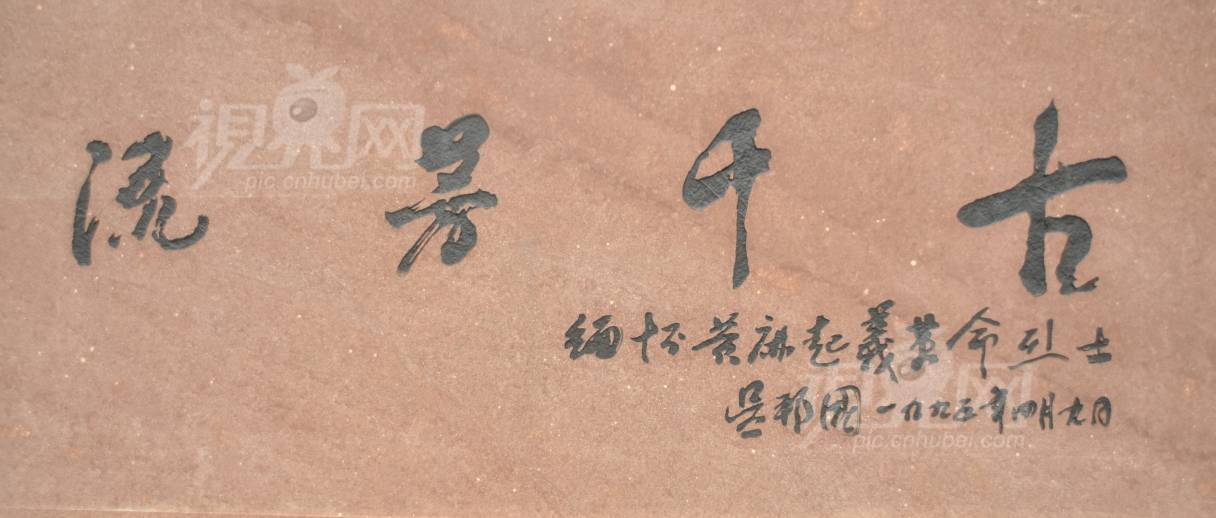 流芳千古
缅怀黄麻起義革命烈士
吴邦国 一九九五年四月九日
視界网
pic.cnhubei.com
視界网
pic.cnhubei.com